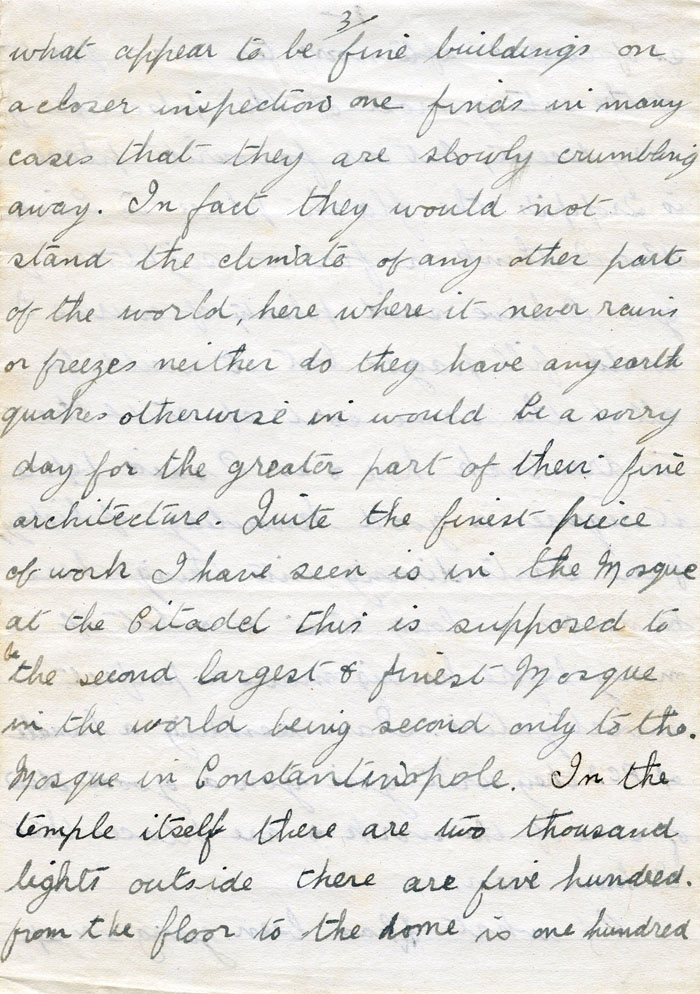 3/
what appear to be fine buildings on
a closer inspection one finds in many
cases that they are slowly crumbling
away. In fact they would not
stand the climate of any other part
of the world, here where it never rains
or freezes neither do they have any earth
quakes otherwise in would be a sorry
day for the greater part of their fine
architecture. Quite the finest piece
of work I have seen is in the Mosque
at the Citadel this is supposed to
be
the second largest & finest Mosque
in the world being second only to the.
Mosque in Constantinopole. In the
temple itself there are two thousand
lights outside there are five hundred.
from the floor to the dome is one hundred